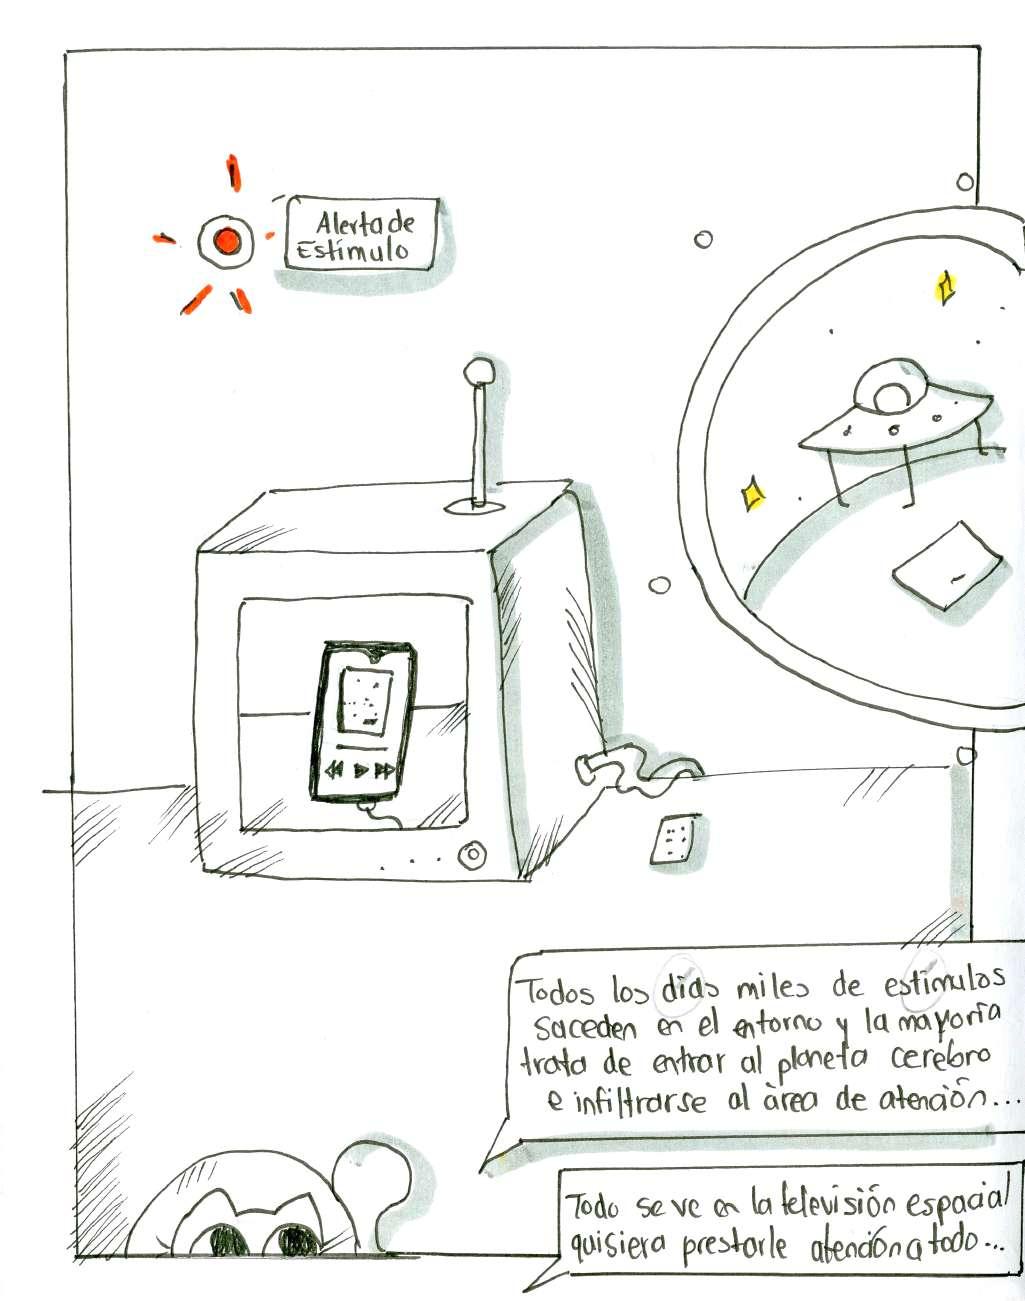 Alerta de
Estímulo
Todos los días miles de estímulos
saceden en el entorno y la mayoría
trata de entrar al planeta cerebro
e infiltrarse al àrea de atención...
Todo se ve en la televisión espacial
quisiera prestarle atención a todo...